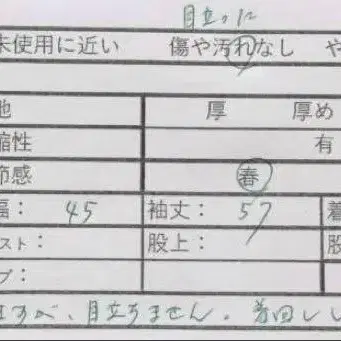 目立った
未使用に近い 傷や汚れなし や
地 厚 厚め
縮性 有
節感 春
幅: 45 袖丈: 57 着
スト: 股上: 股
プ:
ますが、目立ちません。着回しし